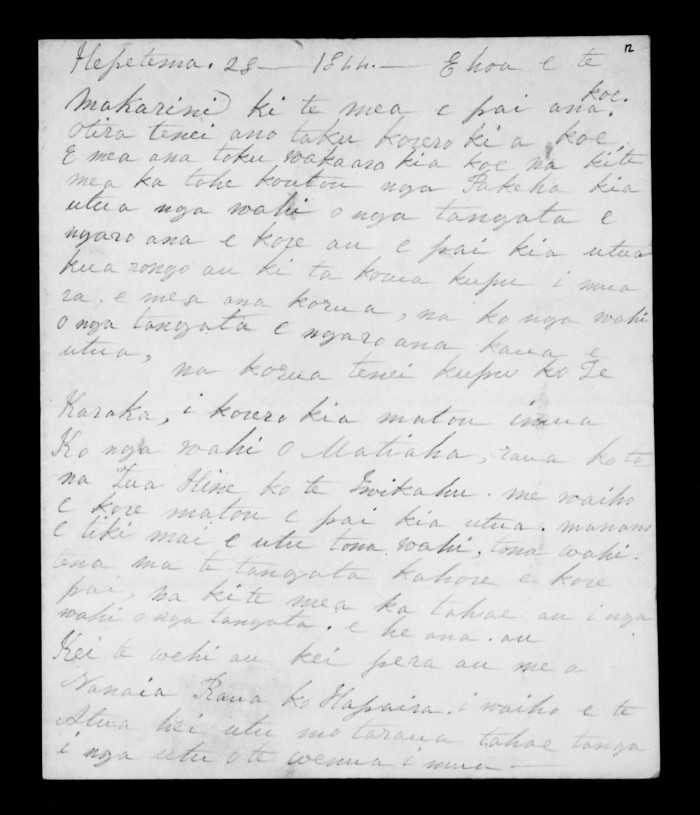 12
Hepetema. 28 — 1844. — E hoa e te
Makarini) ki te mea e pai ana koe.
otira tenei ano taku korero ki a koe,
E mea ana toku wakaaro kia koe na ki te
mea ka tohe koutou nga Pakeha kia
utua nga wahi o nga tangata e
ngaro ana e kore au e pai kia utua
kua rongo au ki ta korua kupu i mua
ra, e mea ana korua, na ko nga wahi
o nga tangata e ngaro ana kaua e
utua, na korua tenei kupu ko Te
Karaka, i korero kia matou imua
Ko nga wahi o Matiaha, raua ko to
na Tua Hine ko te Iwikahu. me waiho
e kore matou e pai kia utua. manano
e tiki mai e utu tona wahi, tona wahi.
tena ma te tangata kahore e kore
pai, na ki te mea ka tahae au i nga
wahi o nga tangata. e he ana. au
Kei te wehi au kei pera au me a
Nanaia Raua ko Hapaira. i waiho e te
Atua hei utu mo taraua tahae tanga
i nga utu o te wenua i mua —